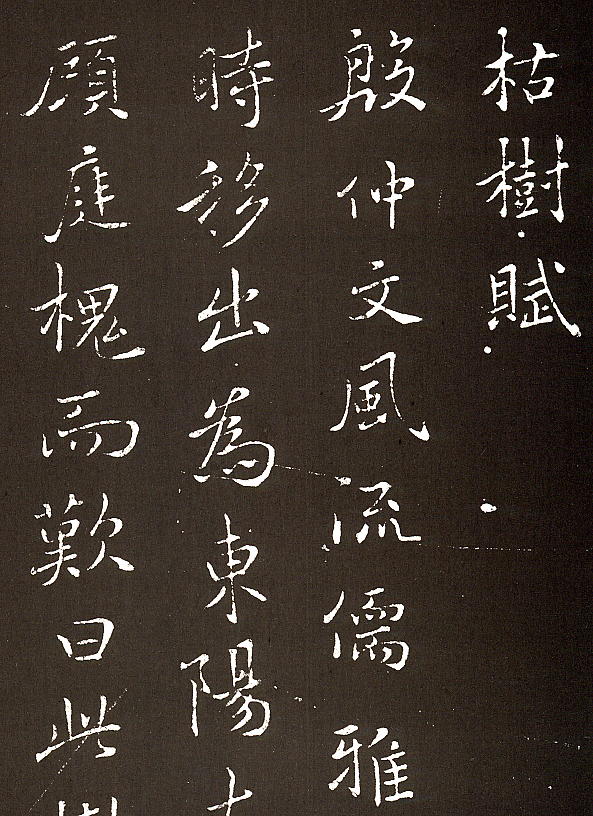 枯樹賦
殷仲文風流儒雅
時移出為東陽
顧庭槐而歎曰此